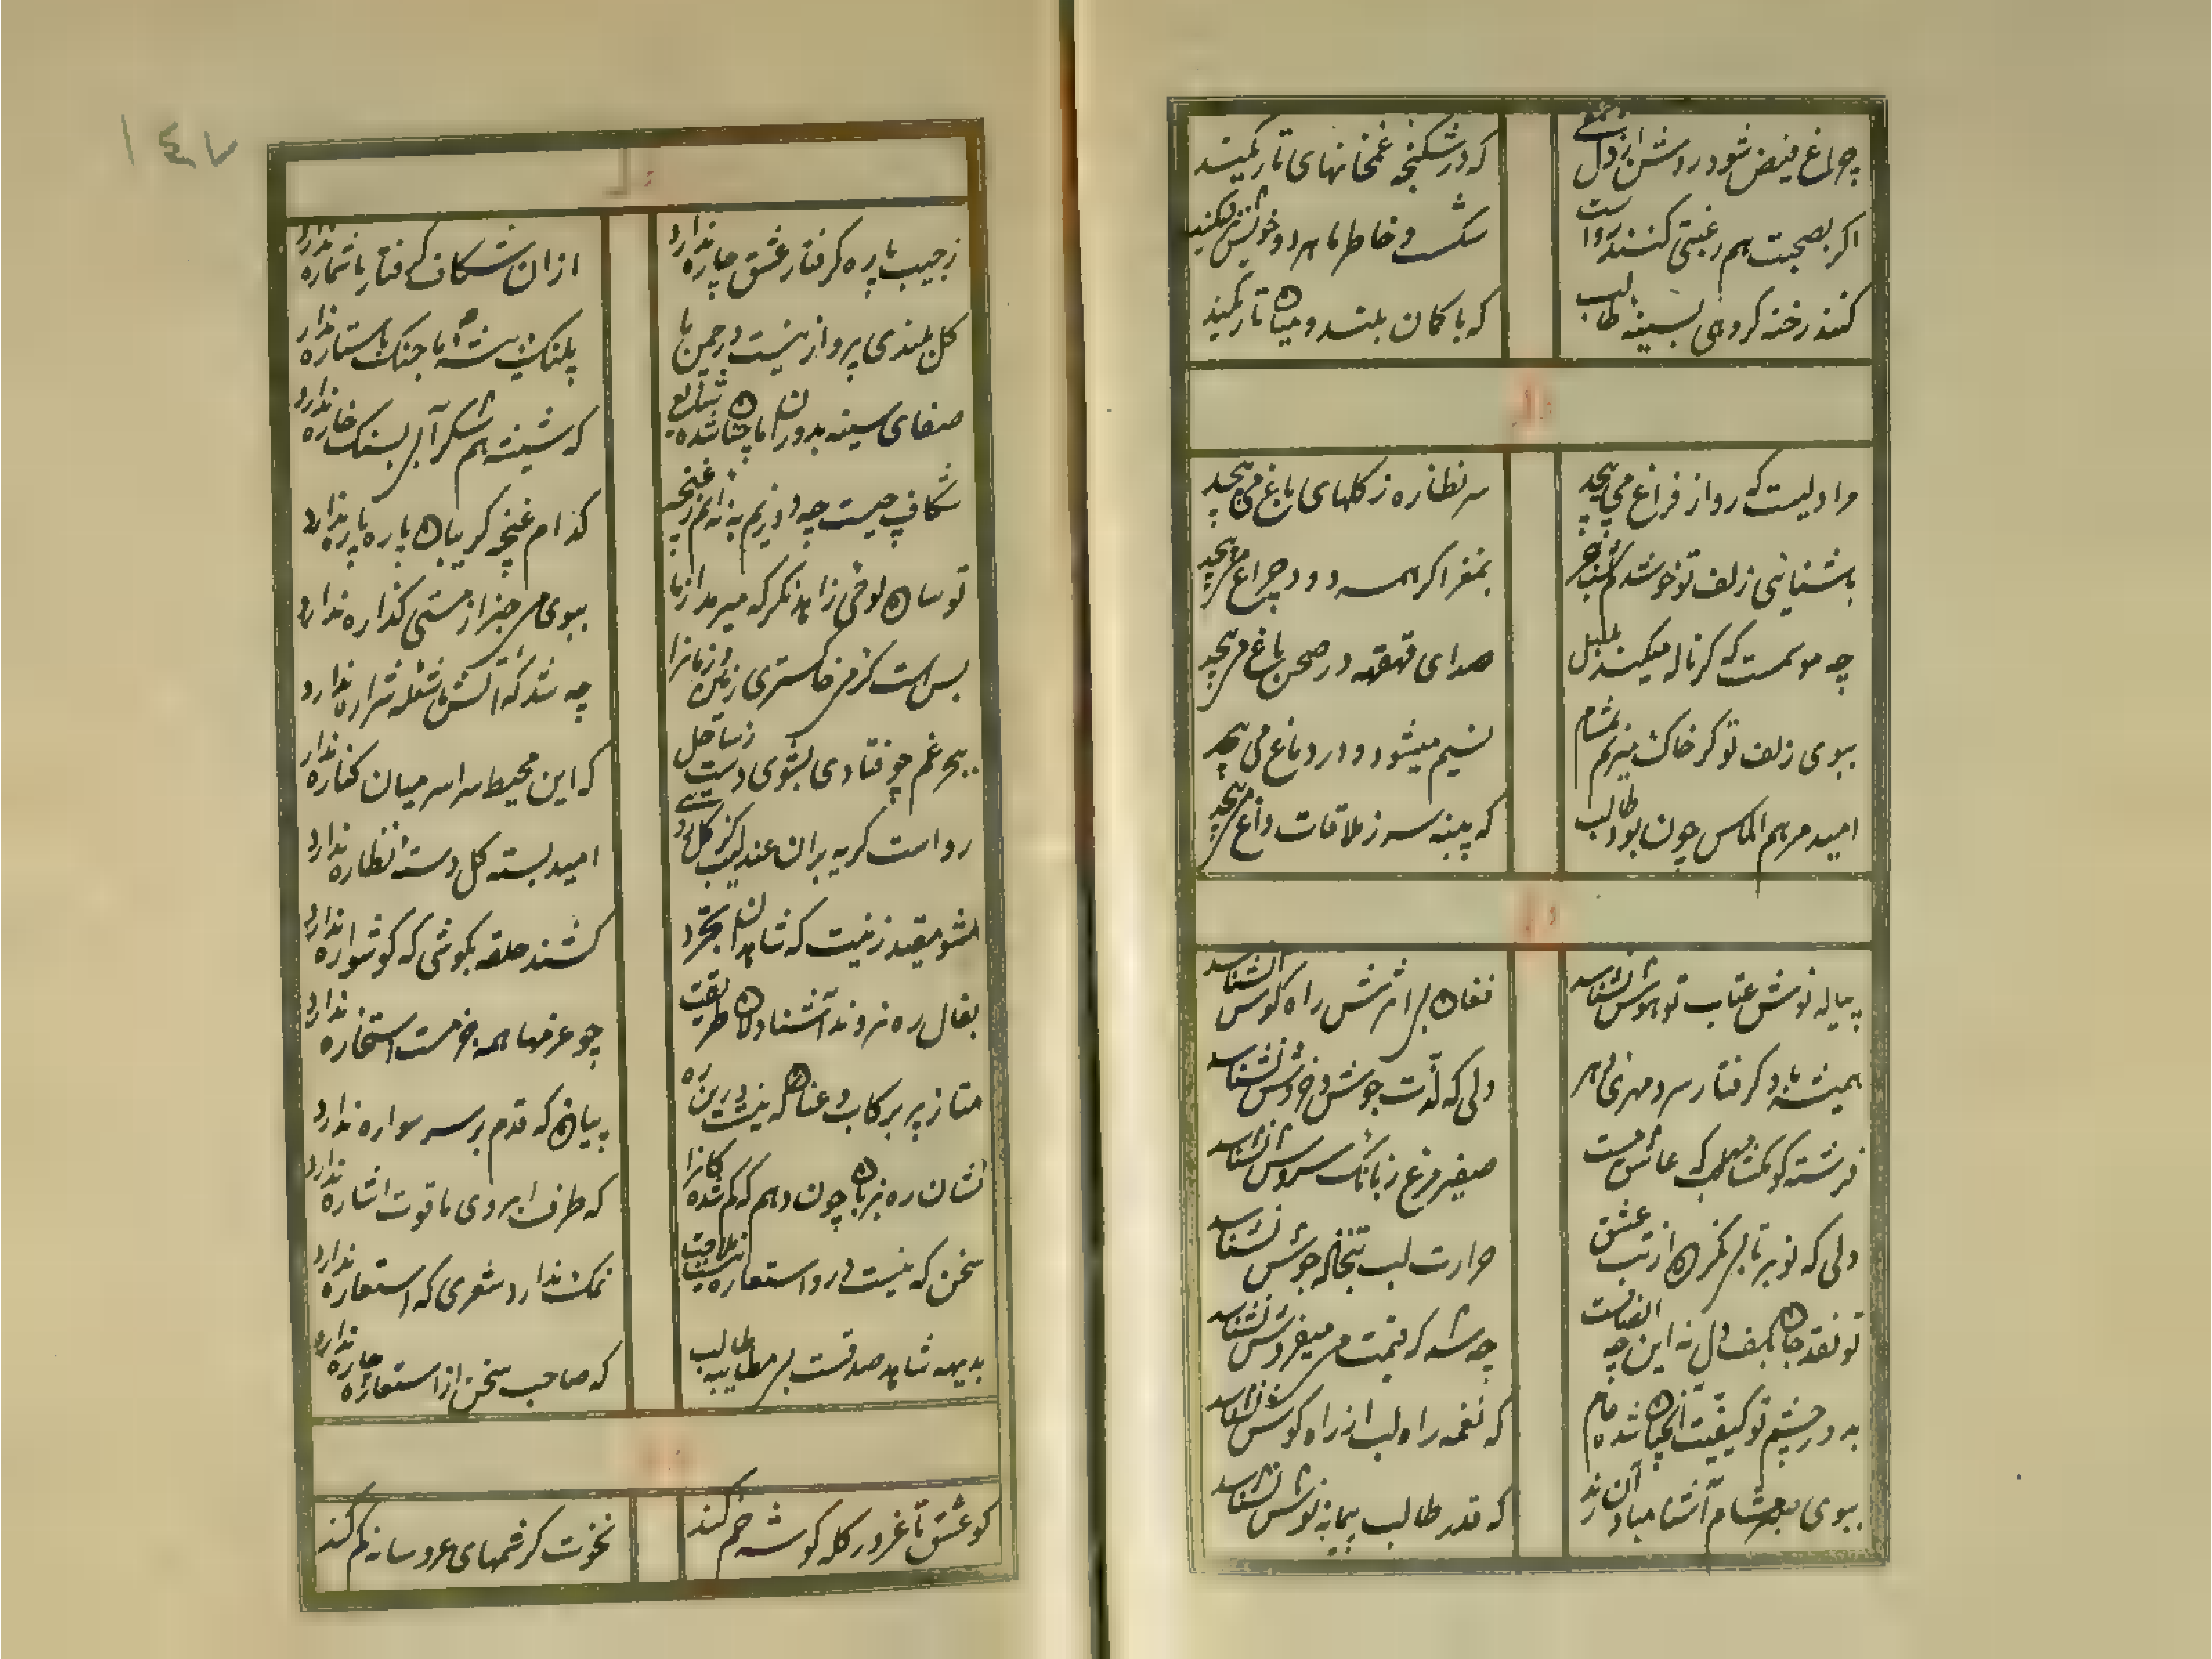 چراغ فیض شود روشن از دل شمعی
که در شکنجه غمخانهای تاریکند
اگر بصحبت هم رغبتی کنند رواست
شکست و خاطر ما هر دو خویش نزدیکند
کنند رخنه گروهی بسینه طالب
که با کمان بلند و میان باریکند
مرا دلیست که رو از فراغ می پیچد
سر نظاره ز گلهای باغ می پیچد
باشنایی زلف تو خوشدلم
بمغزم اگر همه دود چراغ می پیچد
چه موسمست که گر ناله میکند بلبل
صدای قهقهه در صحن باغ می پیچد
ببوی زلف تو گر خاک میزنم بمشام
نسیم میشود و در دماغ می پیچد
امید مرهم الماس چون بود طالب
که پنبه سر ز ملاقات داغ می پیچد
پیاله نوش عتاب تو هوش نشناسد
فغان بی اثرش راه گوش نشناسد
همیشه باد گرفتار سرد مهری دهر
دلی که لذت جوش و خروش نشناسد
فرشته گو مگشا لب که عاشق مست
صفیر مرغ ز بانگ سروش نشناسد
دلی که نوبر تابی نکرد از تب عشق
حرارت لب تبخاله جوش نشناسد
تو نقد جان بکف دل نه این چه انصافست
چه شد که قیمت می میفروش نشناسد
بدور چشم تو کیفیت آنچنان شده عام
که نغمه راه لب از راه گوش نشناسد
ببوی می مشام آشنا مباد آن رند
که قدر طالب پیمانه نوش نشناسد
١٤٧
ز جیب پاره گرفتار عشق چاره ندارد
از آن شکاف گرفتار ما شماره ندارد
گل بلندی پرواز نیست در چمن ما
پلنگ بیشه ما جنگ با ستاره ندارد
صفای سینه بدوران ما چنان شده شایع
که شیشه هم شکرآبی بسنگ خاره ندارد
شکاف جیب چه دوزیم به نه ایم ز غنچه
کدام غنچه گریبان پاره پاره ندارد
تو سان لوفی زاهد نگر که میرمد از ما
ببوی می خبر از مستی گذاره ندارد
بس است گرمی خاکستری زمین و زمان را
چه شد که آتش ما شعله شراره ندارد
ببحر غم چو فتادی بشوی دست ز ساحل
که این محیط سراسر میان کناره ندارد
رواست گریه بر آن عندلیب کز گل رویت
امید بسته گل دسته نظاره ندارد
مشو مقید زینت که شاهدان تجرد
کشند حلقه بگوشی که گوشواره ندارد
بفال ره نروند آشنا دلان طریقت
چو عزمها همه جزمست استخاره ندارد
متاز پر برکاب و عنان که نیست درین ره
پیاده که قدم بر سر سواره ندارد
نشان ره بزبان چون دهم که گم شدگان را
که طرف ابروی ما قوت اشاره ندارد
سخن که نیست درو استعاره نیست ملاحت
نمک ندارد شعری که استعاره ندارد
بدیهه شاهد صدقست بر مطایبه طالب
که صاحب سخن از استعاره چاره ندارد
کو عشق تا غرور کله گوشه خم کند
نخوت کرشمهای عروسانه کم کند